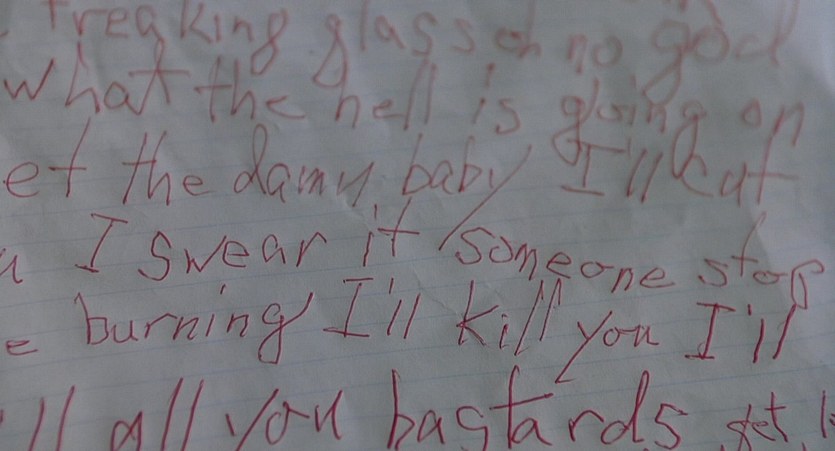 freaking glass oh no god
what the hell is going on
et the damn baby I'll cut
u I swear it someone stop
e burning I'll kill you I'll
'll all you bastards get